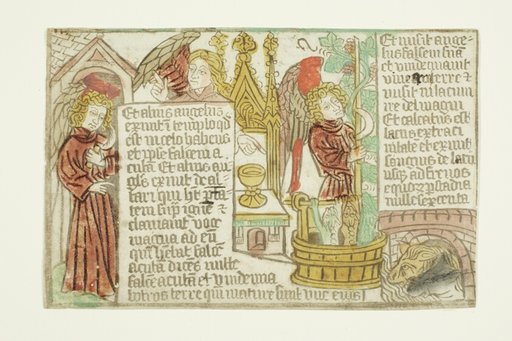 Et alius angelus
exivit d templo qd
est in celo habens
et ipse falcem a
cutā Et alius an
gls exivit de al
tari qui ht ptā
tem sup ignē et
clamavit voce
magna ad eū
qui hēbat falcē
acutā dicēs mitte
falcē acutā et vindemia
botros terre qui mature sunt uve eius
Et misit ange
lus falcem suā
et vindemiavit
vineā terre et
misit in lacum
ire dei magni
Et calcatus est
lacus extra ci
vitatē et exivit
sanguis de lacu
usq ad frenos
equoꝝ p stadia
mille sexcenta